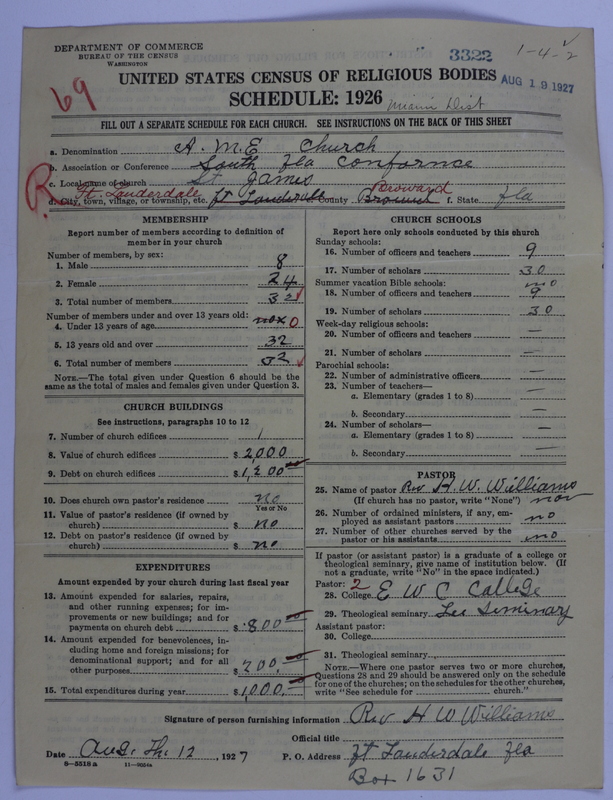 DEPARTMENT OF COMMERCE
BUREAU OF THE CENSUS
WASHINGTON
3322
1-4-2
69
UNITED STATES CENSUS OF RELIGIOUS BODIES
AUG 19 1927
SCHEDULE: 1926
Miami Dist
FILL OUT A SEPARATE SCHEDULE FOR EACH CHURCH. SEE INSTRUCTIONS ON THE BACK OF THIS SHEET
a. Denomination A. M. E. Church
b. Association or Conference South Fla Confornce
c. Local name of church St James
R. Ft. Lauderdale Broward
d. City, town, village, or township, etc. Ft Lauderdale County f. State Fla
MEMBERSHIP
Report number of members according to definition of
member in your church
Number of members, by sex:
1. Male 8
2. Female 24
3. Total number of members 32
Number of members under and over 13 years old:
4. Under 13 years of age 0
5. 13 years old and over 32
6. Total number of members 32
NOTE.—The total given under Question 6 should be
same as the total of males and females given under Question 3.
CHURCH BUILDINGS
See instructions, paragraphs 10 to 12
7. Number of church edifices 1
8. Value of church edifices $ 2,000
9. Debt on church edifices $ 1,200
10. Does church own pastor's residence no
Yes or No
11. Value of pastor's residence (if owned by
church) $ no
12. Debt on pastor's residence (if owned by
church) $ no
EXPENDITURES
Amount expended by your church during last fiscal year
13. Amount expended for salaries, repairs,
and other running expenses; for im-
provements or new buildings; and for
payments on church debt $ 800
14. Amount expended for benevolences, in-
cluding home and foreign missions; for
denominational support; and for all
other purposes $ 200
15. Total expenditures during year $ 1,000
CHURCH SCHOOLS
Report here only schools conducted by this church
Sunday schools:
16. Number of officers and teachers 9
17. Number of scholars 30
Summer vacation Bible schools: no
18. Number of officers and teachers 9
19. Number of scholars 30
Week-day religious schools:
20. Number of officers and teachers —
21. Number of scholars —
Parochial schools:
22. Number of administrative officers —
23. Number of teachers—
a. Elementary (grades 1 to 8) —
b. Secondary —
24. Number of scholars—
a. Elementary (grades 1 to 8) —
b. Secondary —
PASTOR
25. Name of pastor Rev H. W. Williams
(If church has no pastor, write "None")
26. Number of ordained ministers, if any, em-
ployed as assistant pastors no
27. Number of other churches served by the
pastor or his assistants no
If pastor (or assistant pastor) is a graduate of a college or
theological seminary, give name of institution below. (If
not a graduate, write "No" in the space indicated.)
Pastor: 2
28. College E W C Callege
29. Theological seminary Lee Seminary
Assistant pastor:
30. College
31. Theological seminary
NOTE.—Where one pastor serves two or more churches,
Questions 28 and 29 should be answered only on the schedule
for one of the churches; on the schedules for the other churches,
write "See schedule for church."
Signature of person furnishing information Rev H W Williams
Official title
Date Aug. Th. 12, 1927 P. O. Address Ft Lauderdale Fla
8-5318a 11-9054a
Box 1631